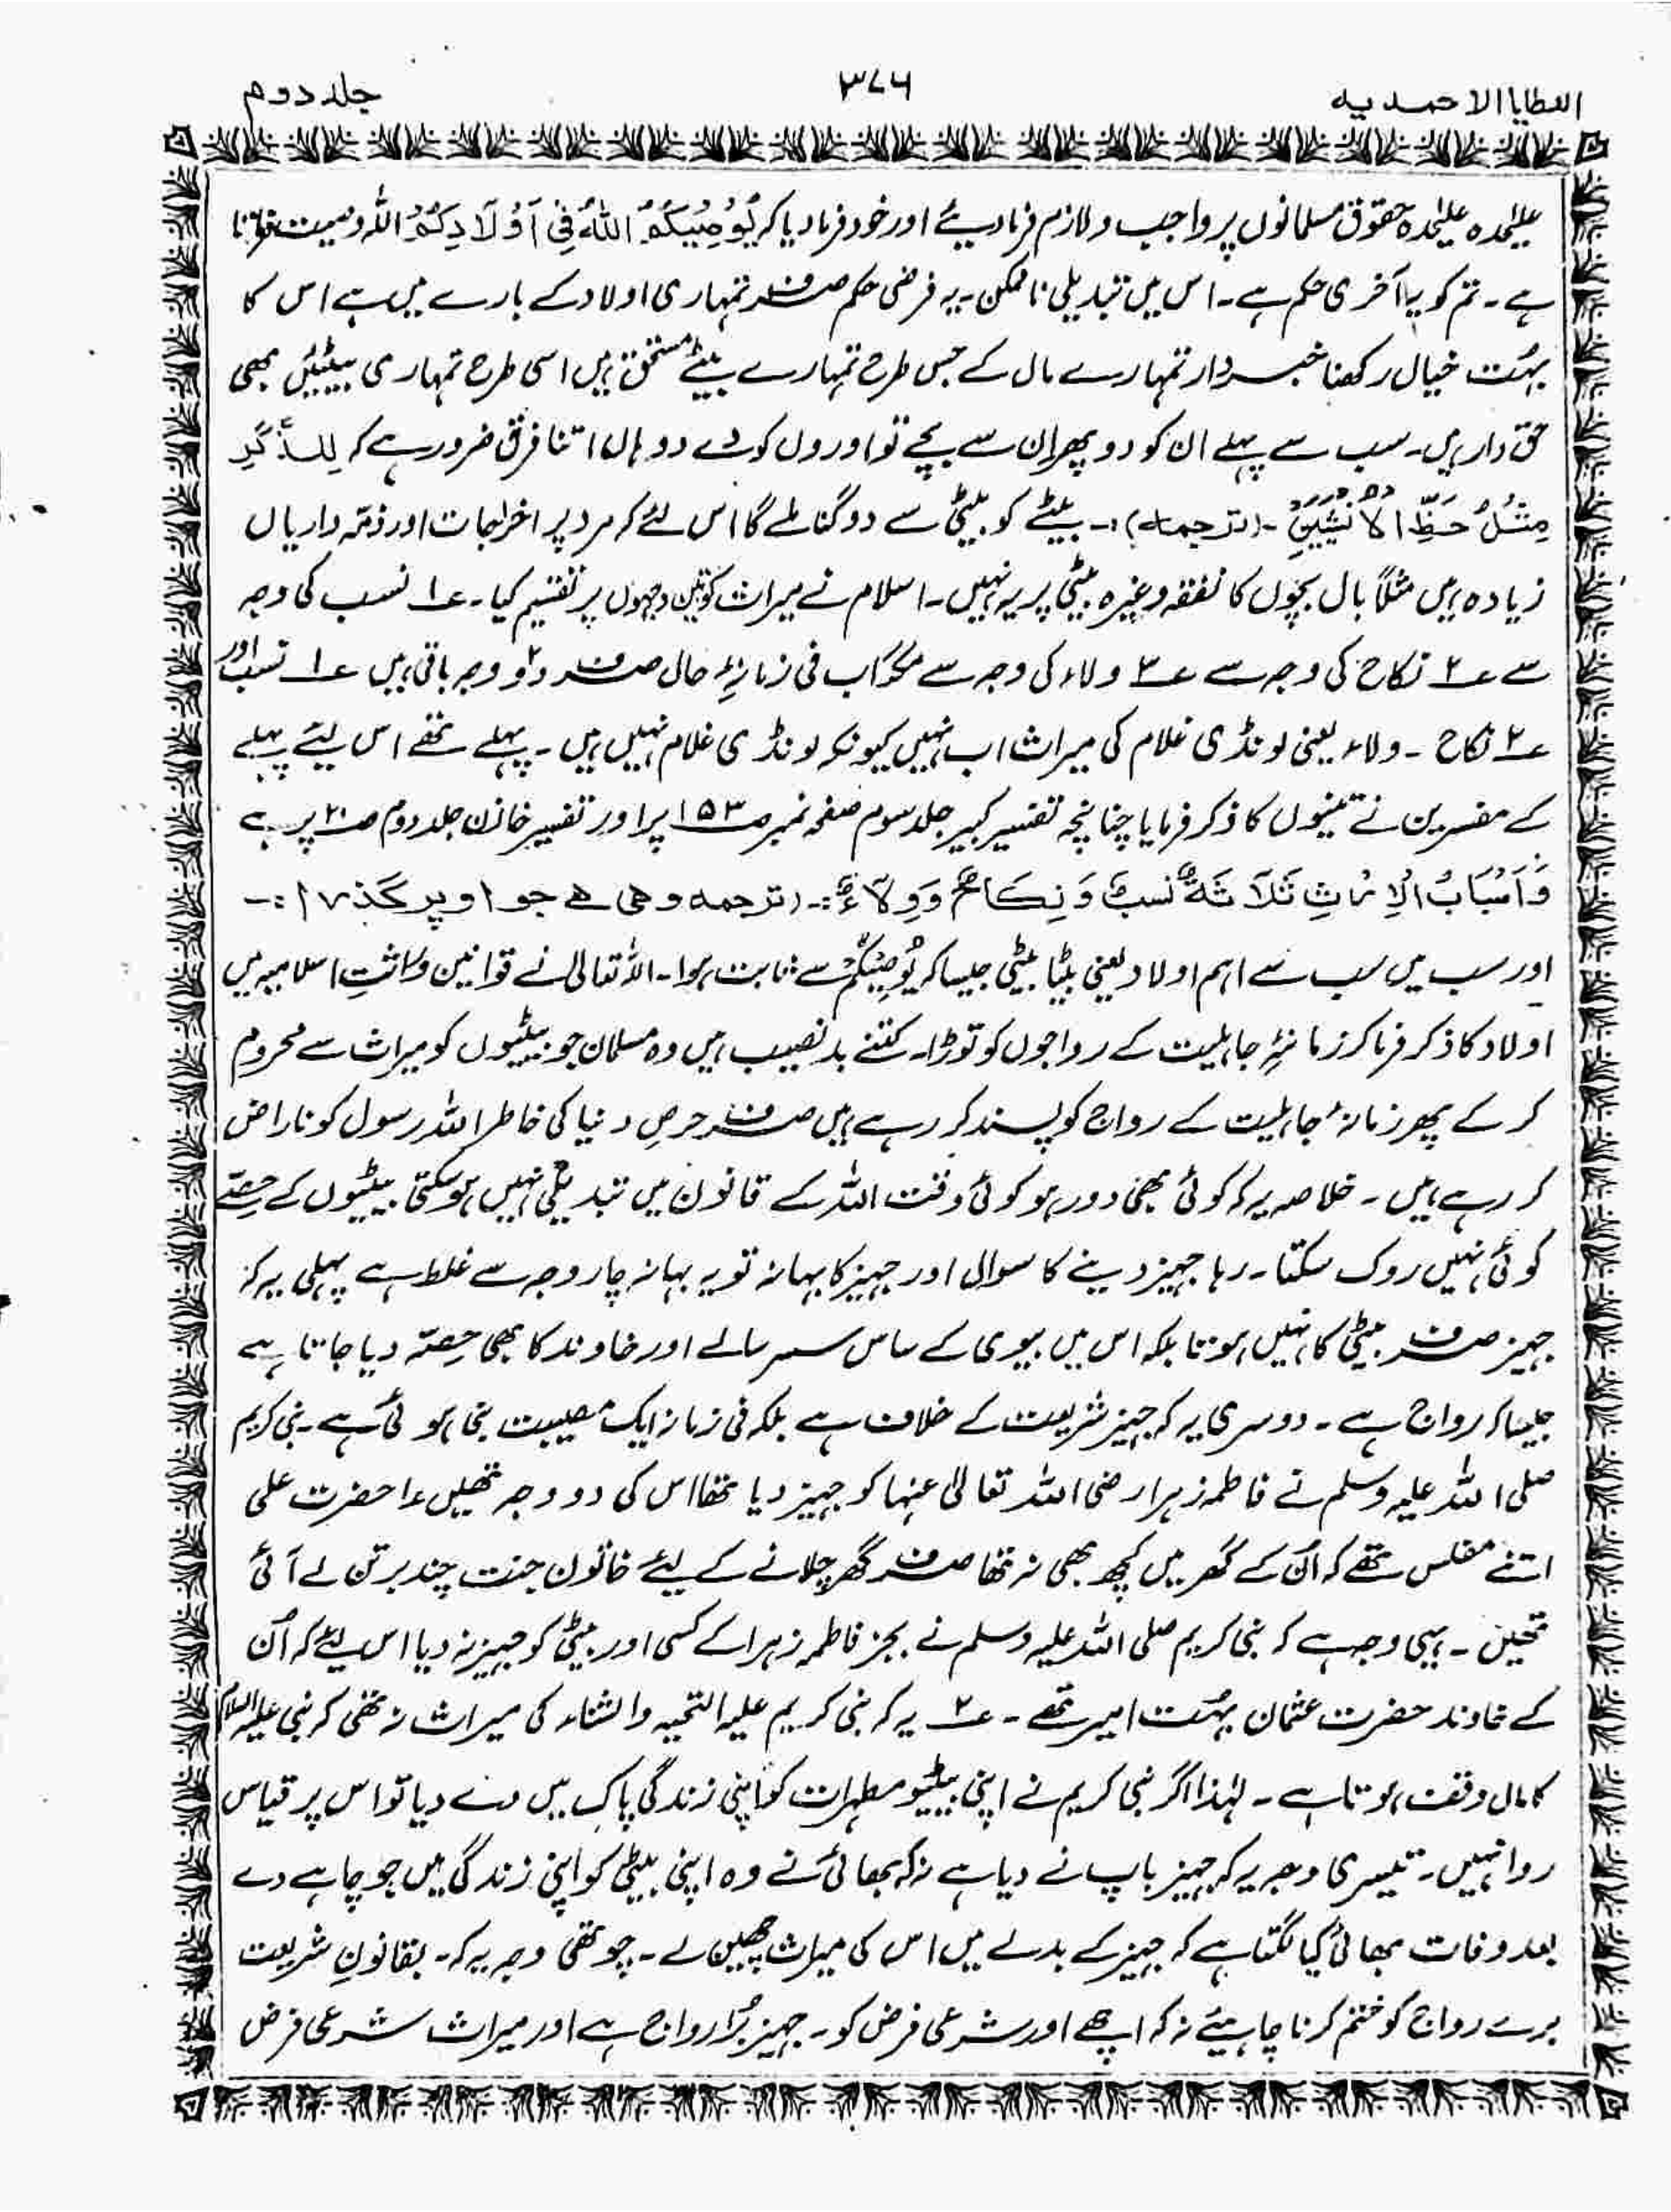 العطایا الاحمدیہ
۳۷۶
جلد دوم
علیٰحدہ علیٰحدہ حقوق مسلمانوں پر واجب و لازم فرما دیئے اور خود فرما دیا کہ یُوْصِیْکُمُ اللّٰہُ فِیْ اَوْلَادِکُمْ اللہ وصیت فرماتا
ہے۔ تم کو یہ آخری حکم ہے۔ اس میں تبدیلی ناممکن۔ یہ فرضی حکم صرف تمہاری اولاد کے بارے میں ہے اس کا
بہُت خیال رکھنا خبردار تمہارے مال کے جس طرح تمہارے بیٹے مستحق ہیں اسی طرح تمہاری بیٹیئیں بھی
حق دار ہیں۔ سب سے پہلے ان کو دو پھر اِن سے بچے تو اوروں کو دے دو ہاں اتنا فرق ضرور ہے کہ لِلذَّکَرِ
مِثْلُ حَظِّ الْاُنْثَیَیْنِ۔ (ترجمہ):۔ بیٹے کو بیٹی سے دوگنا ملے گا اس لئے کہ مرد پر اخراجات اور ذمّہ داریاں
زیادہ ہیں مثلاً بال بچوں کا نفقہ وغیرہ بیٹی پر یہ نہیں۔ اسلام نے میراث کو تین وجہوں پر تقسیم کیا۔ ؏۱ نسب کی وجہ
سے ؏۲ نکاح کی وجہ سے ؏۳ ولاء کی وجہ سے مگر اب فی زمانۂ حال صرف دو۲ وجہ باقی ہیں ؏۱ نسب اور
؏۲ نکاح ۔ ولاء یعنی لونڈی غلام کی میراث اب نہیں کیونکہ لونڈی غلام نہیں ہیں ۔ پہلے تھے اس لیئے پہلے
کے مفسرین نے تینوں کا ذکر فرمایا چنانچہ تفسیر کبیر جلد سوم صفحہ نمبر صـ۱۵۳ پر اور تفسیر خازن جلد دوم صـ۲۰ پر ہے
وَاَسْبَابُ الْاِرْثِ ثَلَاثَۃٌ نَسَبٌ وَنِکَاحٌ وَوِلَاءٌ:۔ (ترجمہ وھی ھے جو اوپر گذرا):۔
اور سب میں سب سے اہم اولاد یعنی بیٹا بیٹی جیسا کہ یُوْصِیْکُمْ سے ثابت ہوا۔ اللہ تعالیٰ نے قوانین وراثتِ اسلامیہ میں
اولاد کا ذکر فرما کر زمانۂ جاہلیت کے رواجوں کو توڑا۔ کتنے بدنصیب ہیں وہ مسلمان جو بیٹیوں کو میراث سے محروم
کر کے پھر زمانۂ جاہلیت کے رواج کو پسند کر رہے ہیں صرف حرصِ دنیا کی خاطر اللہ رسول کو ناراض
کر رہے ہیں ۔ خلاصہ یہ کہ کوئی بھی دور ہو کوئی وقت اللہ کے قانون میں تبدیلی نہیں ہو سکتی بیٹیوں کے حِصّے
کوئی نہیں روک سکتا۔ رہا جہیز دینے کا سوال اور جہیز کا بہانہ تو یہ بہانہ چار وجہ سے غلط ہے پہلی یہ کہ
جہیز صرف بیٹی کا نہیں ہوتا بلکہ اس میں بیوی کے ساس سسر سالے اور خاوند کا بھی حِصّہ دیا جاتا ہے
جیسا کہ رواج ہے ۔ دوسری یہ کہ جہیز شریعت کے خلاف ہے بلکہ فی زمانہ ایک مصیبت بنی ہوئی ہے ۔ نبی کریم
صلی اللہ علیہ وسلم نے فاطمہ زہرا رضی اللہ تعالیٰ عنہا کو جہیز دیا تھا اس کی دو وجہ تھیں ؏۱ حضرت علی
اتنے مفلس تھے کہ اُن کے گھر میں کچھ بھی نہ تھا صرف گھر چلانے کے لیئے خاتون جنت چند برتن لے آئی
تھیں ۔ یہی وجہ ہے کہ نبی کریم صلی اللہ علیہ وسلم نے بجز فاطمہ زہرا کے کسی اور بیٹی کو جہیز نہ دیا اس لیئے کہ اُن
کے خاوند حضرت عثمان بہُت امیر تھے ۔ ؏۲ یہ کہ نبی کریم علیہ التحیہ والثناء کی میراث نہ تھی کہ نبی علیہ السلام
کا مال وقف ہوتا ہے ۔ لہٰذا اگر نبی کریم نے اپنی بیٹیو مطہرات کو اپنی زندگی پاک میں دے دیا تو اس پر قیاس
روا نہیں ۔ تیسری وجہ یہ کہ جہیز باپ نے دیا ہے نہ کہ بھائی نے وہ اپنی بیٹی کو اپنی زندگی میں جو چاہے دے
بعد وفات بھائی کیا لگتا ہے کہ جہیز کے بدلے میں اس کی میراث چھین لے ۔ چوتھی وجہ یہ کہ ۔ بقانونِ شریعت
برے رواج کو ختم کرنا چاہیئے نہ کہ اچھے اور شرعی فرض کو ۔ جہیز بُرا رواج ہے اور میراث شرعی فرض